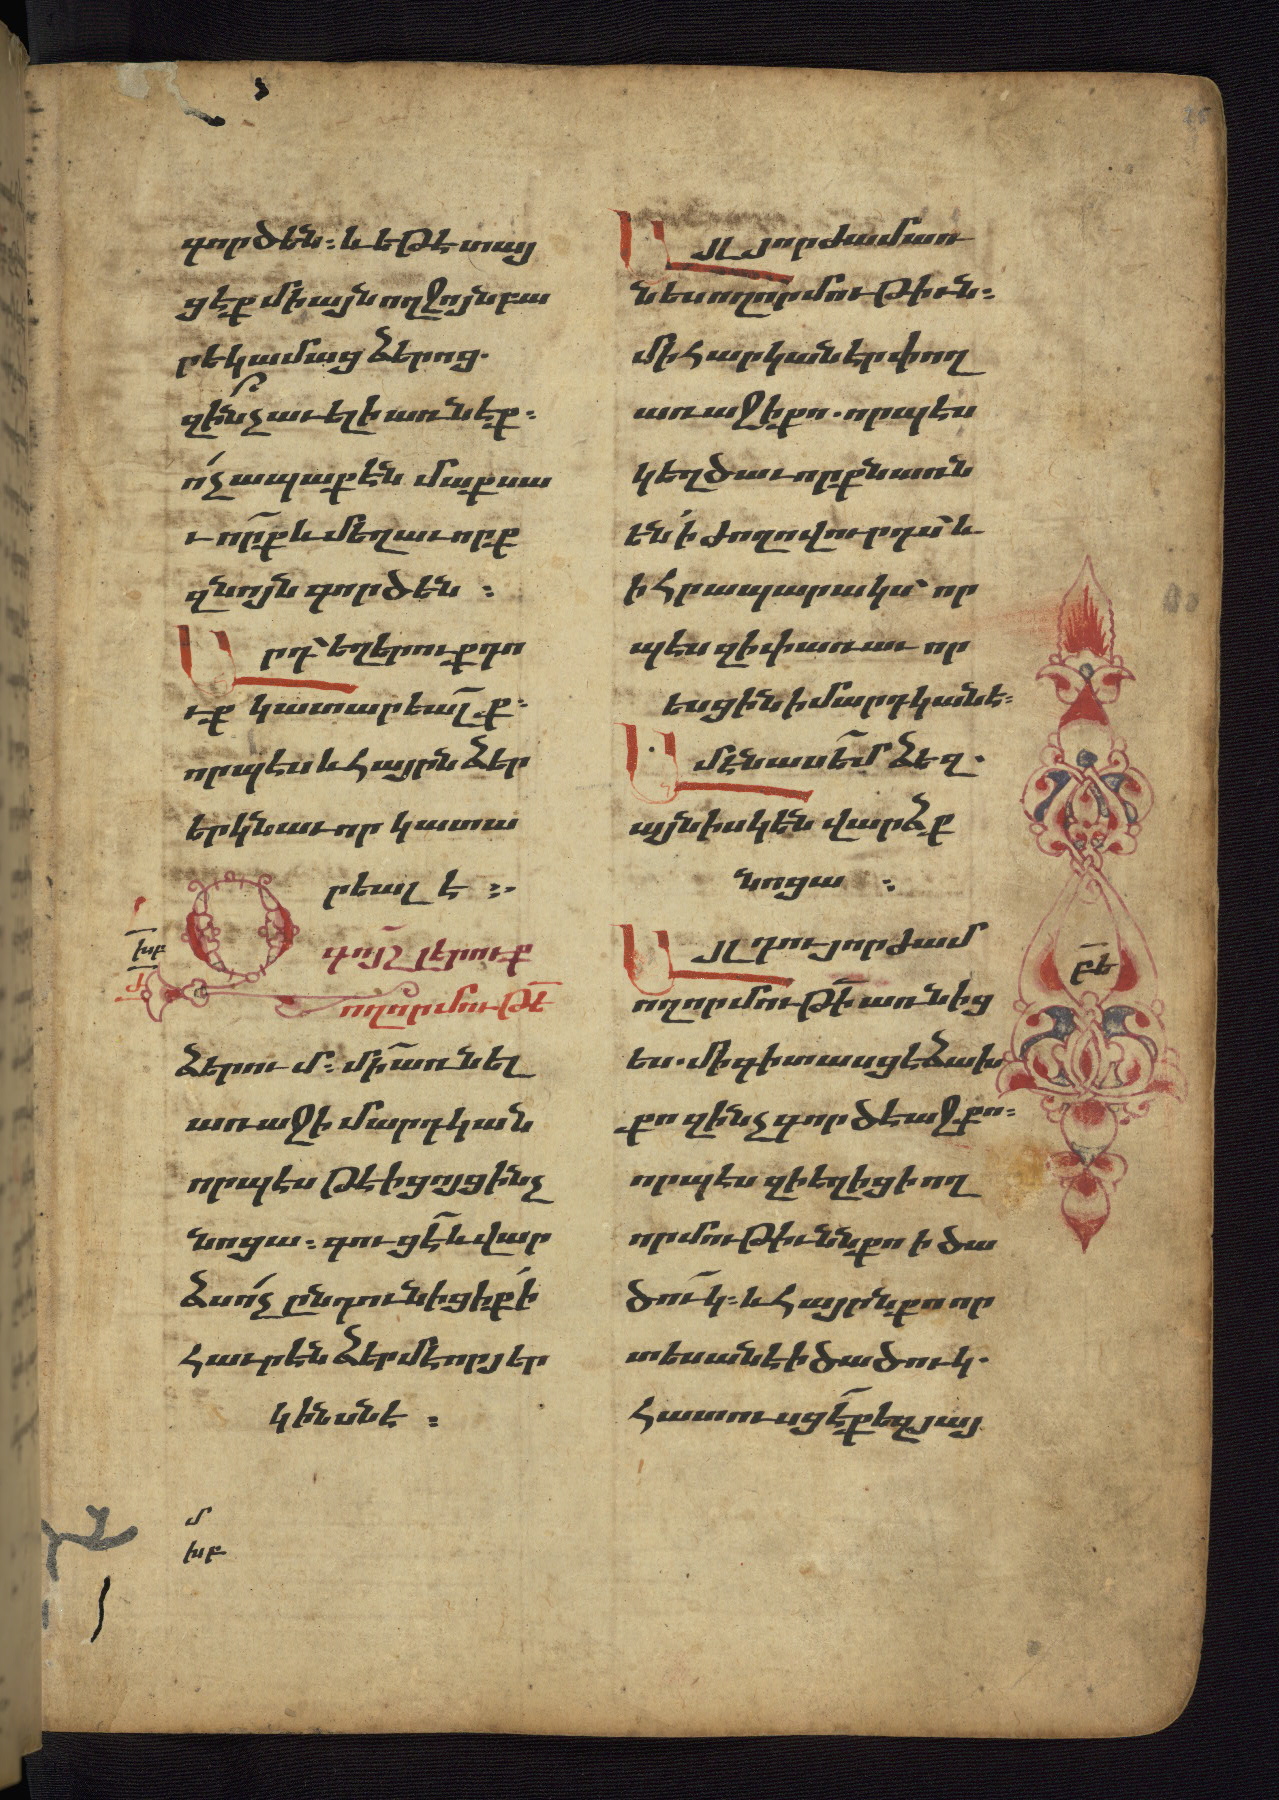 գործեն։ և եթէ տայ
ցէք միայն ողջոյն բա
րեկամաց ձերոց.
զի՞նչ աւելի առնէք։
ո՛չ ապաքէն մաքսա
ւորք և մեղաւորք
զնոյն գործեն ։
Արդ՝ եղերուք դո
ւք կատարեալք։
որպէս և հայրն ձեր
երկնաւոր կատա
րեալ է ։.
Զգոյշ լերուք
ողորմութե
ձերում։ մի առնել
առաջի մարդկան
որպէս թէ ի ցոյց ինչ
նոցա։ գուցէ և վար
ձս ո՛չ ընդունիցիք ի
հաւրէն ձերմէ որ յեր
կինսնէ ։
մ
խբ
Այլ յորժամ առ
նես ողորմութիւն։
մի հարկաներ փող
առաջի քո. որպէս
կեղծաւորքն առն
են ի ժողովուրդս՝ և
ի հրապարակս՝ որ
պէս զի փառաւոր
եսցին ի մարդկանէ։
Ամէն ասեմ ձեզ.
այն իսկ են վարձք
նոցա ։
Այլ դու յորժամ
ողորմութի առնից
ես. մի գիտասցէ ձախ
քո զինչ գործէ աջ քո։
որպէս զի եղիցի ող
որմութիւնն քո ի ծա
ծուկ։ և հայրն քո որ
տեսանէ ի ծածուկ.
հատուսցէ քեզ յայ
բե